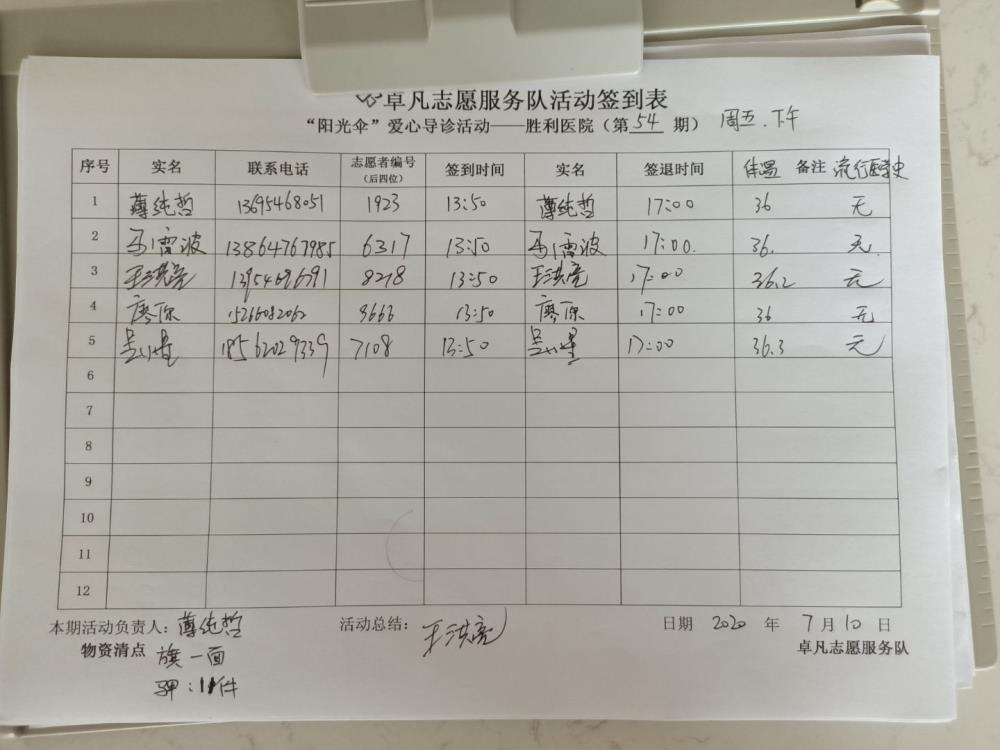 卓凡志愿服务队活动签到表
“阳光伞”爱心导诊活动——胜利医院（第 54 期） 周五.下午
序号 实名 联系电话 志愿者编号（后四位） 签到时间 实名 签退时间 体温 备注 流行医学史
1 薄纯哲 13695468051 1923 13:50 薄纯哲 17:00 36 无
2 马雷波 13864767985 6317 13:50 马雷波 17:00. 36. 无.
3 王洪亮 13954696791 8278 13:50 王洪亮 17:00 36.2 无
4 廖原 15266082062 9666 13:50 廖原 17:00 36 无
5 18562029339 7108 13:50 17:00 36.3 无
6
7
8
9
10
11
12
本期活动负责人：薄纯哲 活动总结： 王洪亮 日期 2020 年 7月10日
物资清点 旗一面 卓凡志愿服务队
：11件